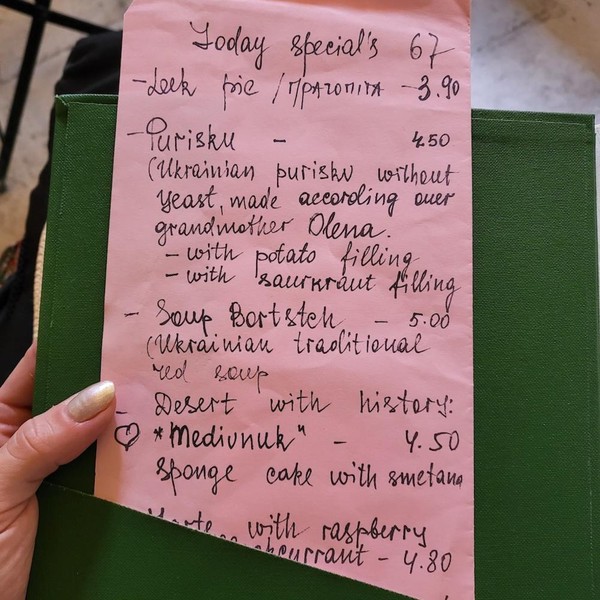 Today special's 67
- Leek pie / Πρασοπιτα - 3.90
- Purisku - 4.50
(Ukrainian purisku without
yeast, made according ouer
grandmother Olena.
- with potato filling
- with saurkraut filling
- Soup Bortstch - 5.00
(Ukrainian traditional
red soup
- Desert with history:
♡ *Mediunuk" - 4.50
sponge cake with smetana
with raspberry
- 4.80